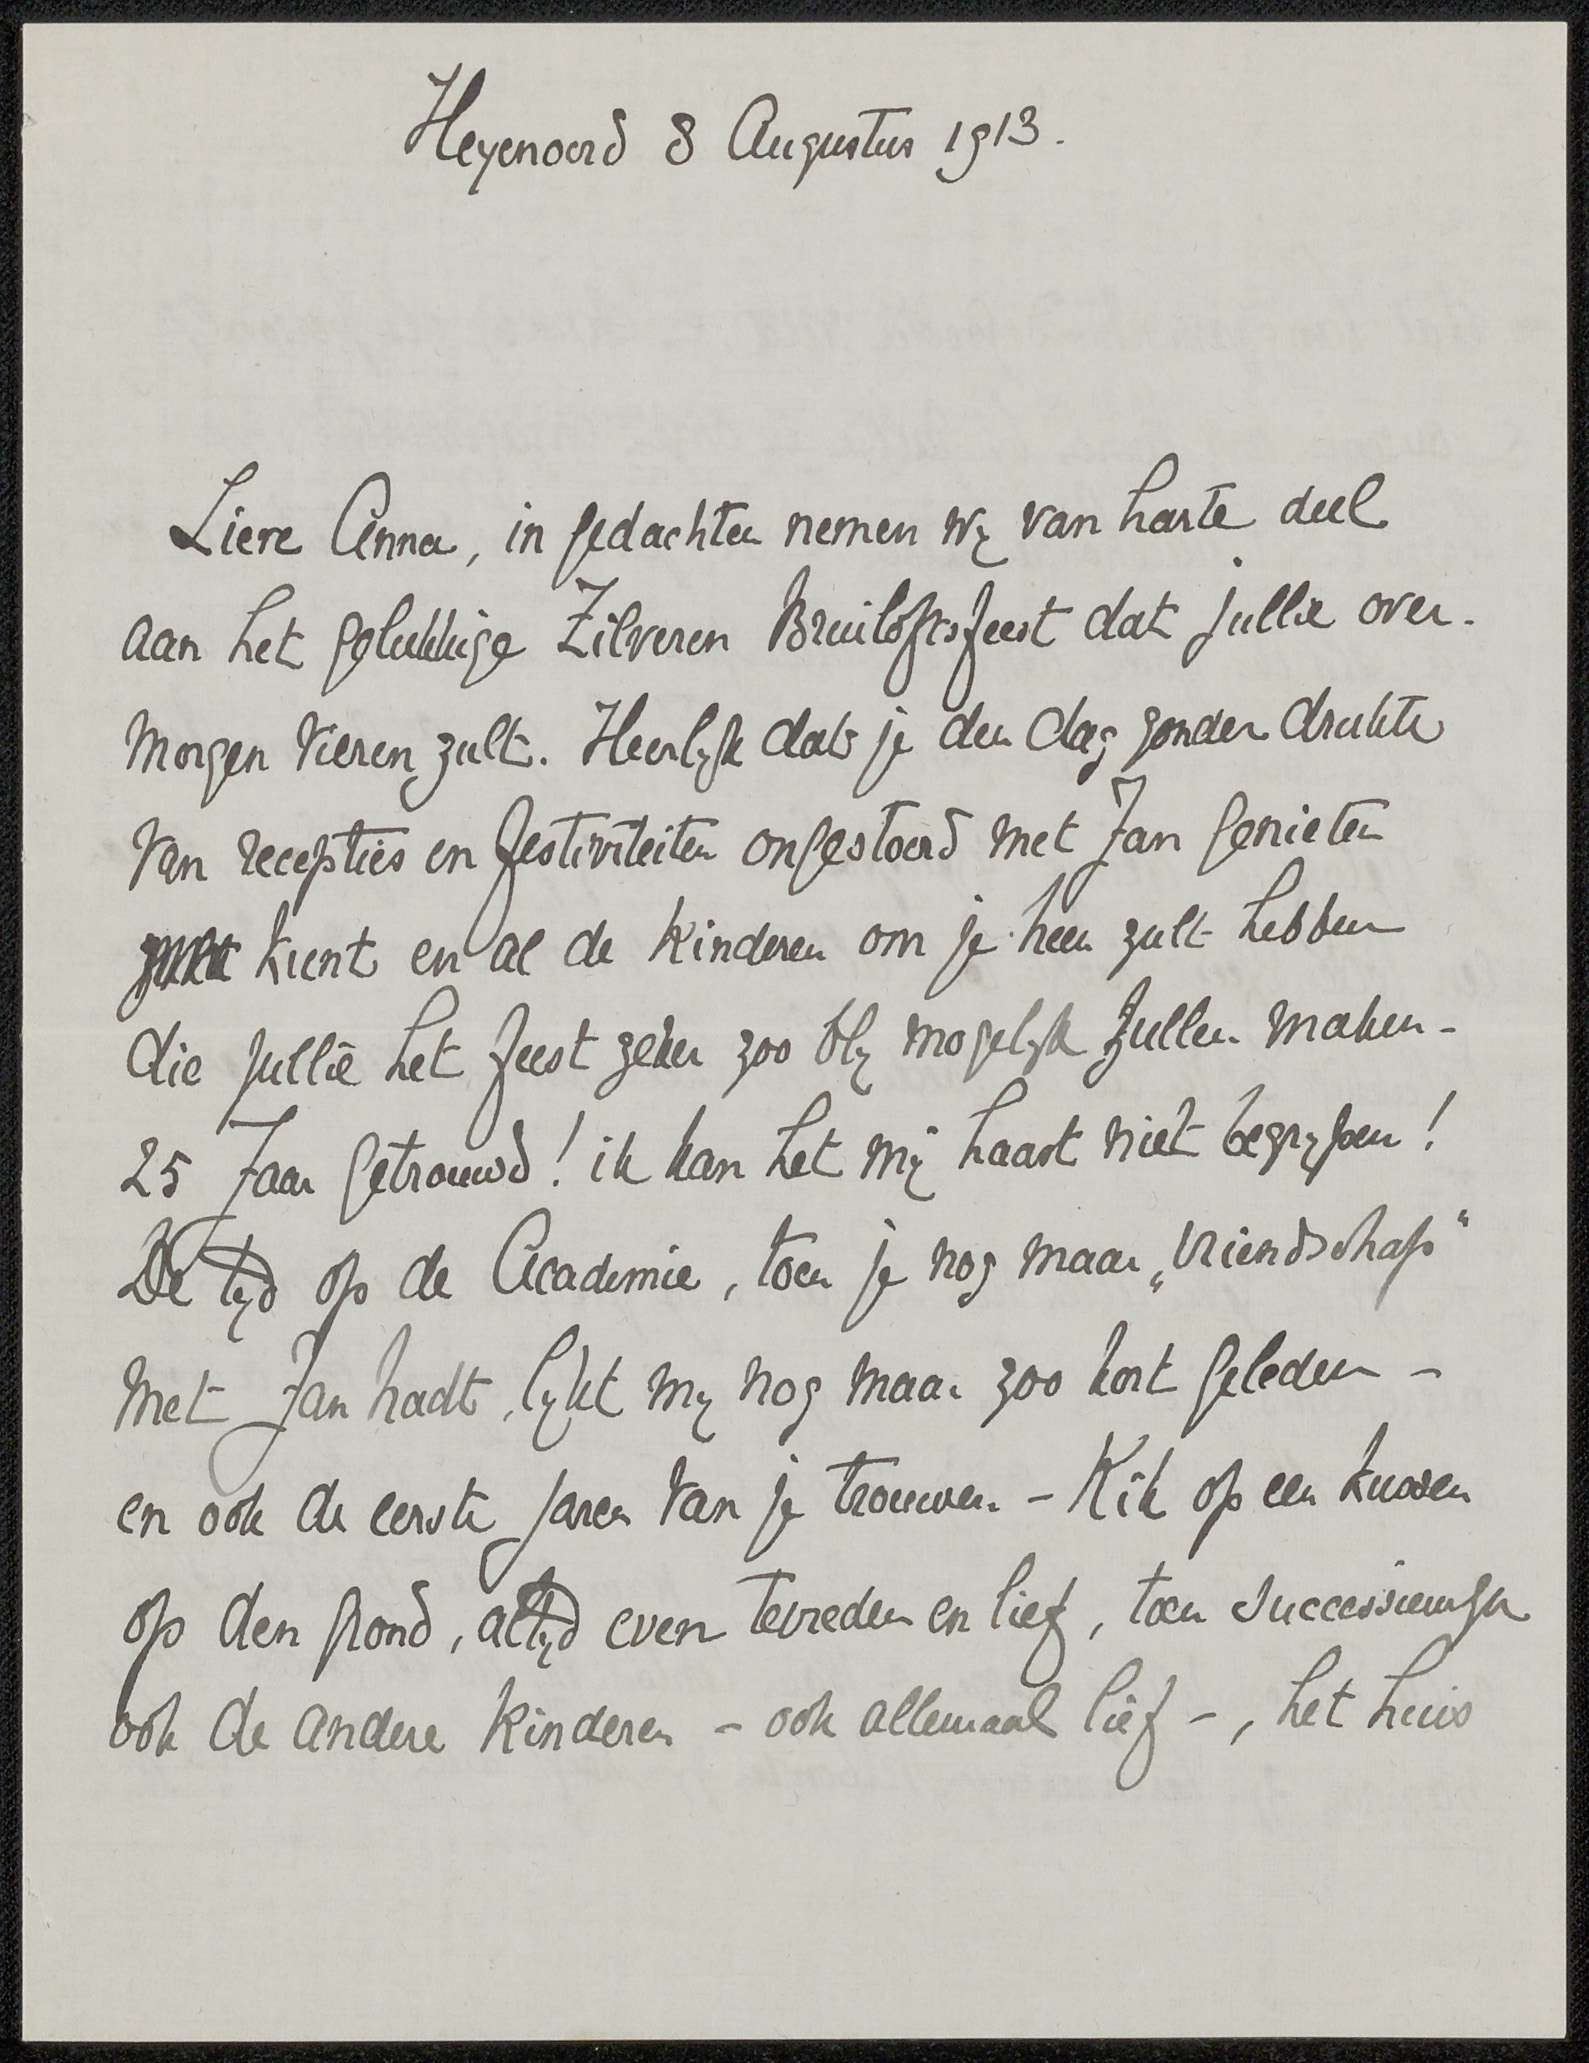 Heyenoord 8 Augustus 1913.
Lieve Anna, in gedachten nemen wij van harte deel
aan het gelukkige Zilveren Bruiloftsfeest dat jullie over-
morgen vieren zult. Heerlijk dat je den dag zonder drukte
van recepties en festiviteiten ongestoord met Jan genieten
kunt en al de kinderen om je heen zult hebben
die jullie het feest zeker zoo blij mogelijk zullen maken -
25 Jaar getrouwd! ik kan het mij haast niet begrijpen!
De tijd op de Academie, toen je nog maar „vriendschap"
met Jan hadt, lijkt mij nog maar zoo kort geleden -
en ook de eerste jaren van je trouwen - Kik op een kussen
op den grond, altijd even tevreden en lief, toen
ook de andere kinderen - ook allemaal lief -, het huis